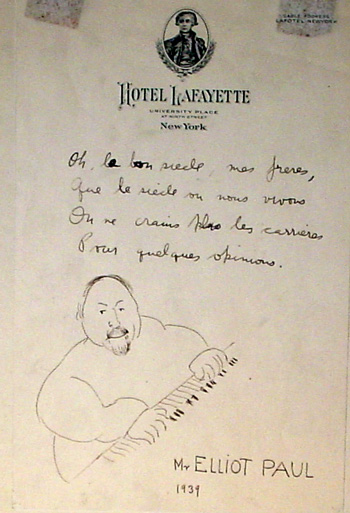 CABLE ADDRESS
LAFOTEL NEWYORK
HOTEL LAFAYETTE
UNIVERSITY PLACE
AT NINTH STREET
New York
Oh, le bon siecle, mes freres,
Que le siecle ou nous vivons
On ne crains plus les carrieres
Pour quelques opinions.
Mr ELLIOT PAUL
1939